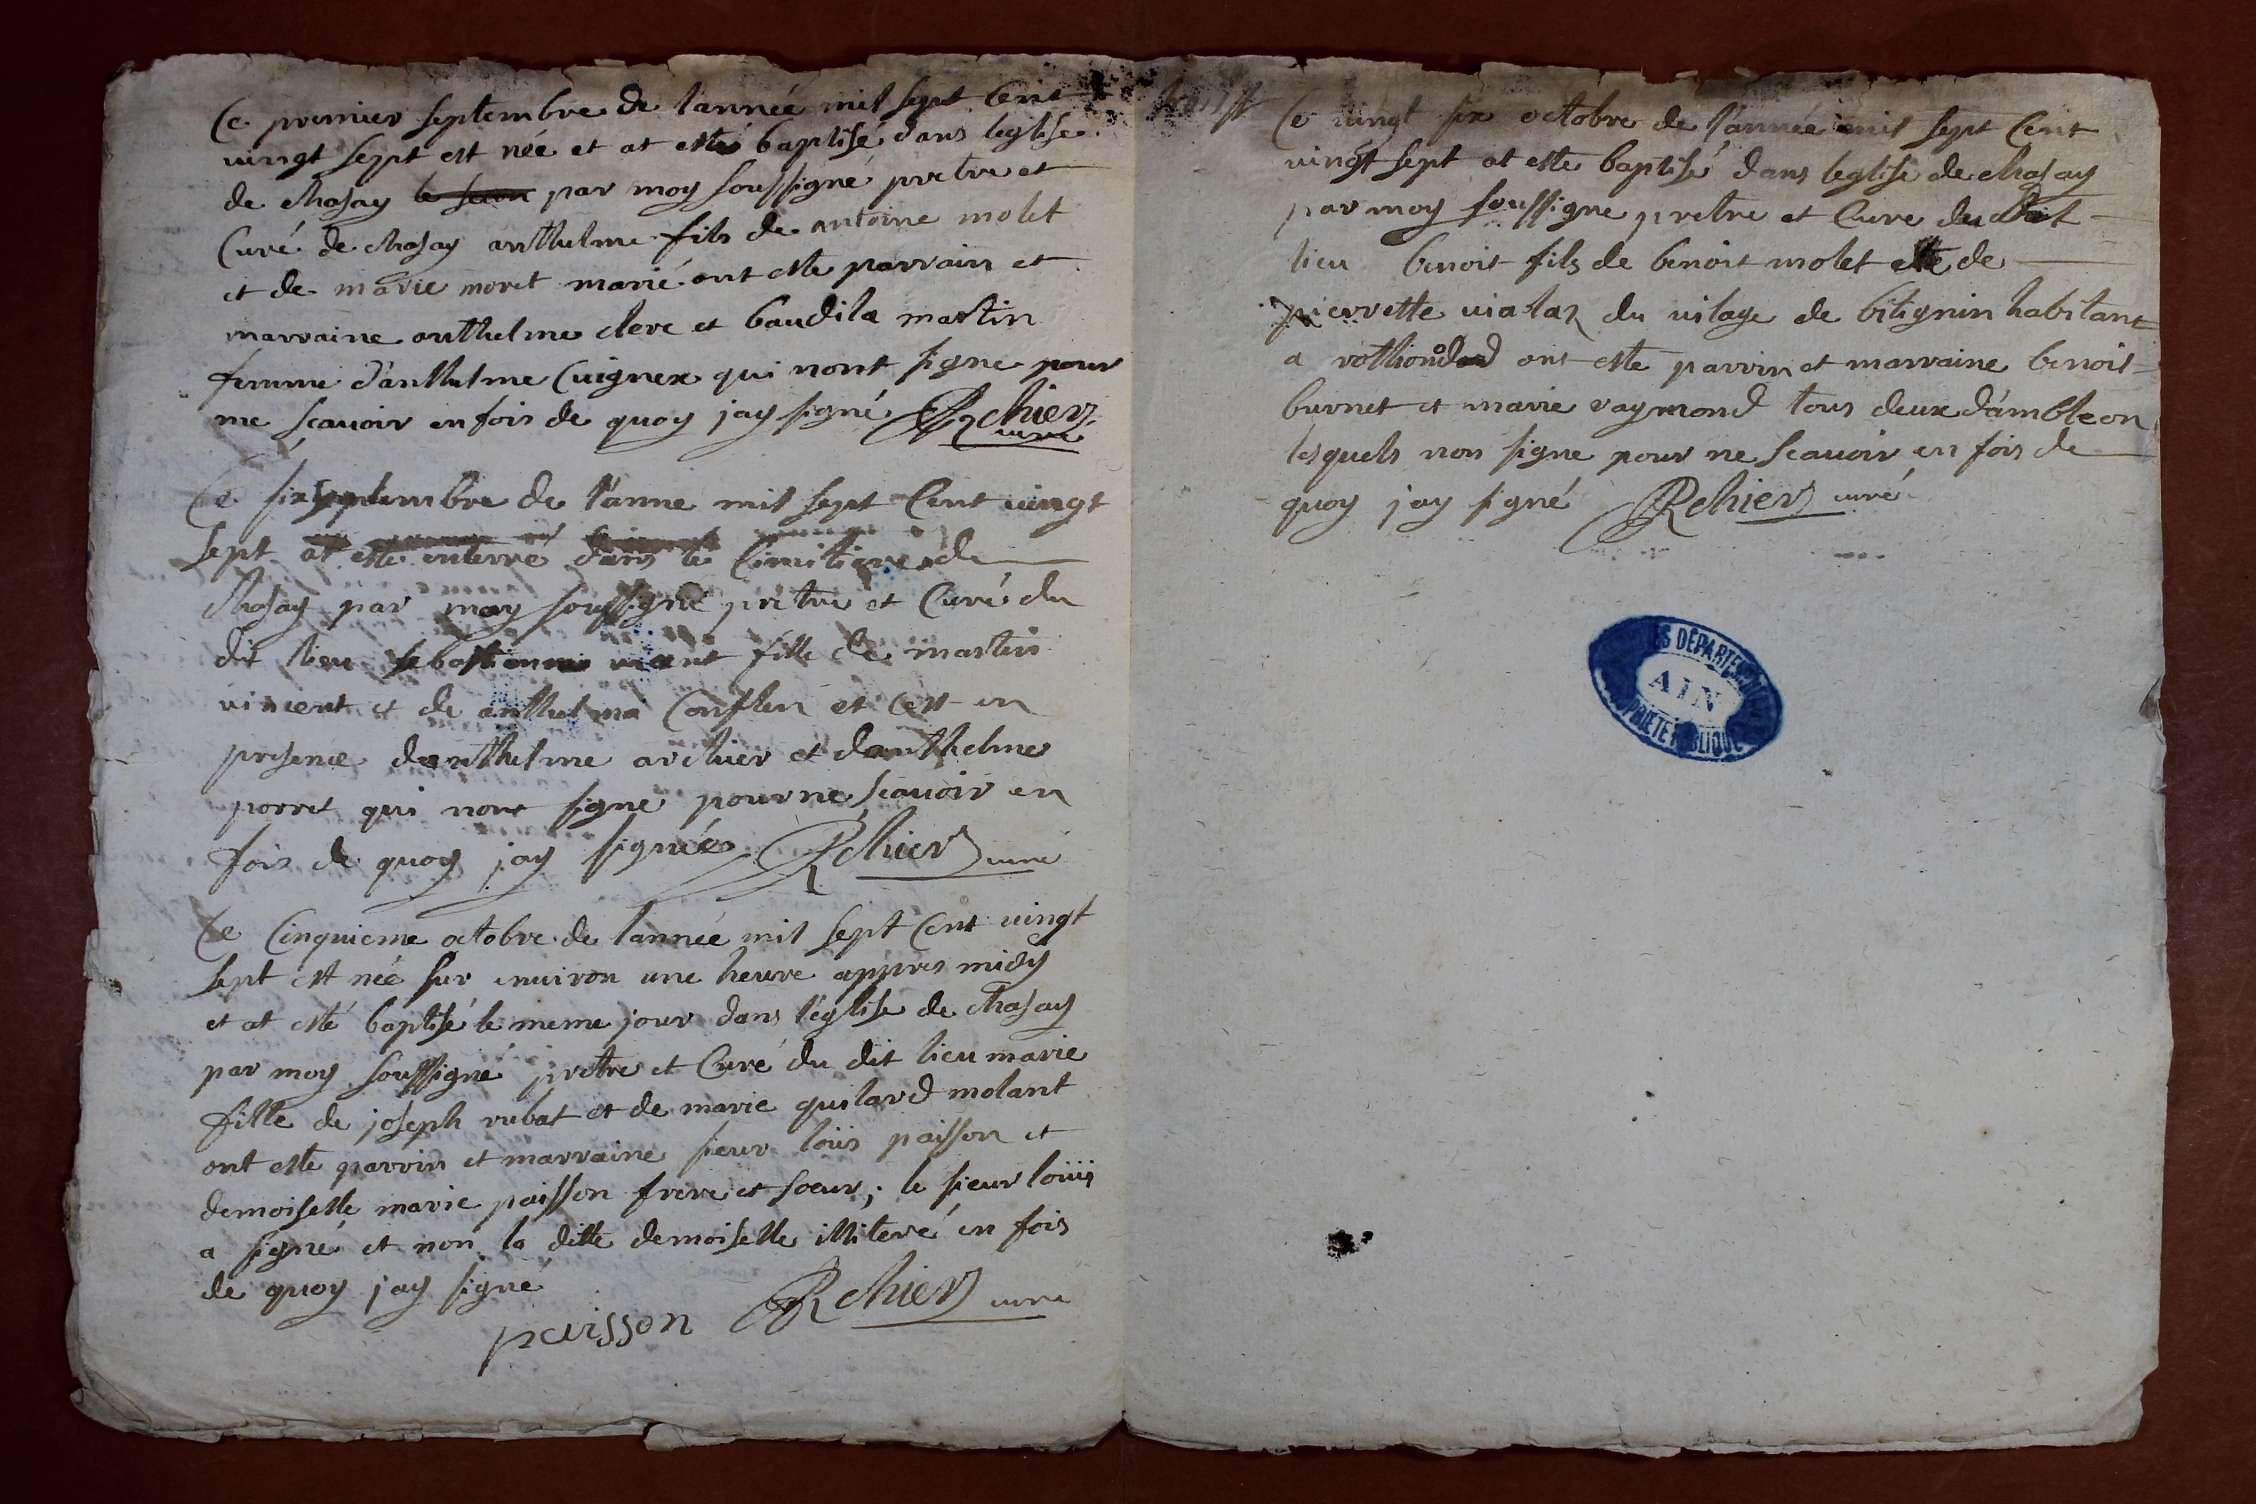 Ce premier septembre de lannée mil sept Cent
vingt sept est née et at esté baptisé dans leglise
de chasay par moy soussigné pretre et
Curé de chasay anthelme fils de antoine molet
et de marie moret marié ont este parrain et
marraine anthelme clerc et baudila martin
femme d'anthelme Cuignex qui nont signe pour
ne scavoir en fois de quoy jay signé Rchier
curé
Ce six septembre de l'anne mil sept Cent vingt
sept at este enterré dans le Cimitiere de
Chasay par moy soussigné pretre et Curé du
dit lieu fille de martin
vincent et de anthelma et cest en
presence danthelme archier et danthelme
porret qui nont signe pour ne scavoir en
fois de quoy jay signée Rchier curé
Ce Cinquieme octobre de lannée mil sept Cent vingt
sept est née sur environ une heure appres midy
et at esté baptisé le meme jour dans l'eglise de chasay
par moy soussigné pretre et Curé du dit lieu marie
fille de joseph rubat et de marie guilard molant
ont este parrin et marraine sieur loüis paisson et
demoiselle marie paisson frere et soeur; le sieur loüis
a signé et non la ditte demoiselle illiteré en fois
de quoy jay signé
paisson Rchier curé
Ce vingt six octobre de l'année mil sept Cent
vingt sept at este baptisé dans leglise de chasay
par moy soussigne pretre et Cure du dit
lieu benoit fils de benoit molet et de
pierrette vialaz du vilage de bitignin habitant
a rothionod ont este parrin et marraine benoit
burnet et marie raymond tous deux d'ambleon
lesquels non signe pour ne scavoir en fois de
quoy jay signé Rchier curé
S DÉPARTE
AIN
PRIÉTÉ PUBLIQUE